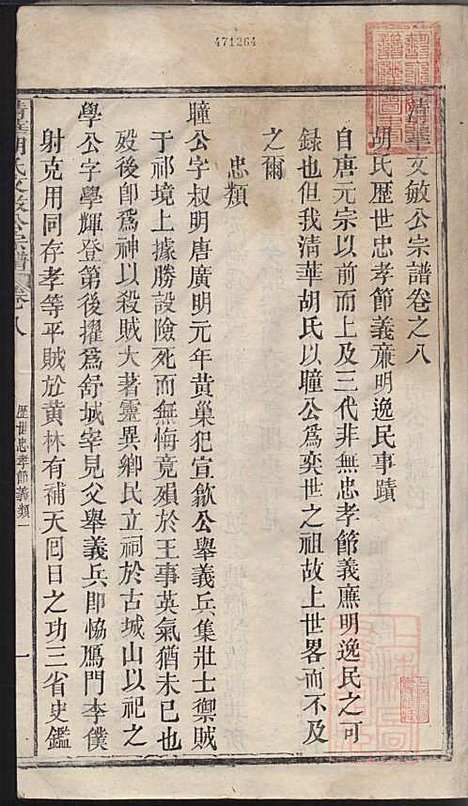 471264
清華文敏公宗譜卷之八
胡氏歷世忠孝節義亷明逸民事蹟
自唐元宗以前而上及三代非無忠孝節義廉明逸民之可
錄也但我清華胡氏以瞳公爲奕世之祖故上世畧而不及
之爾
忠類
瞳公字叔明唐廣明元年黃巢犯宣歙公舉義兵集壯士禦賊
于祁境上據勝設險死而無悔竟殞於王事英氣猶未已也
殁後卽爲神以殺賊大著靈異鄉民立祠於古城山以祀之
學公字學輝登第後擢爲舒城宰見父舉義兵即恊鴈門李僕
射克用同存孝等平賊於黃林有補天囘日之功三省史鑑
清華胡氏文敏公宗譜 卷八
歷世忠孝節義類
一